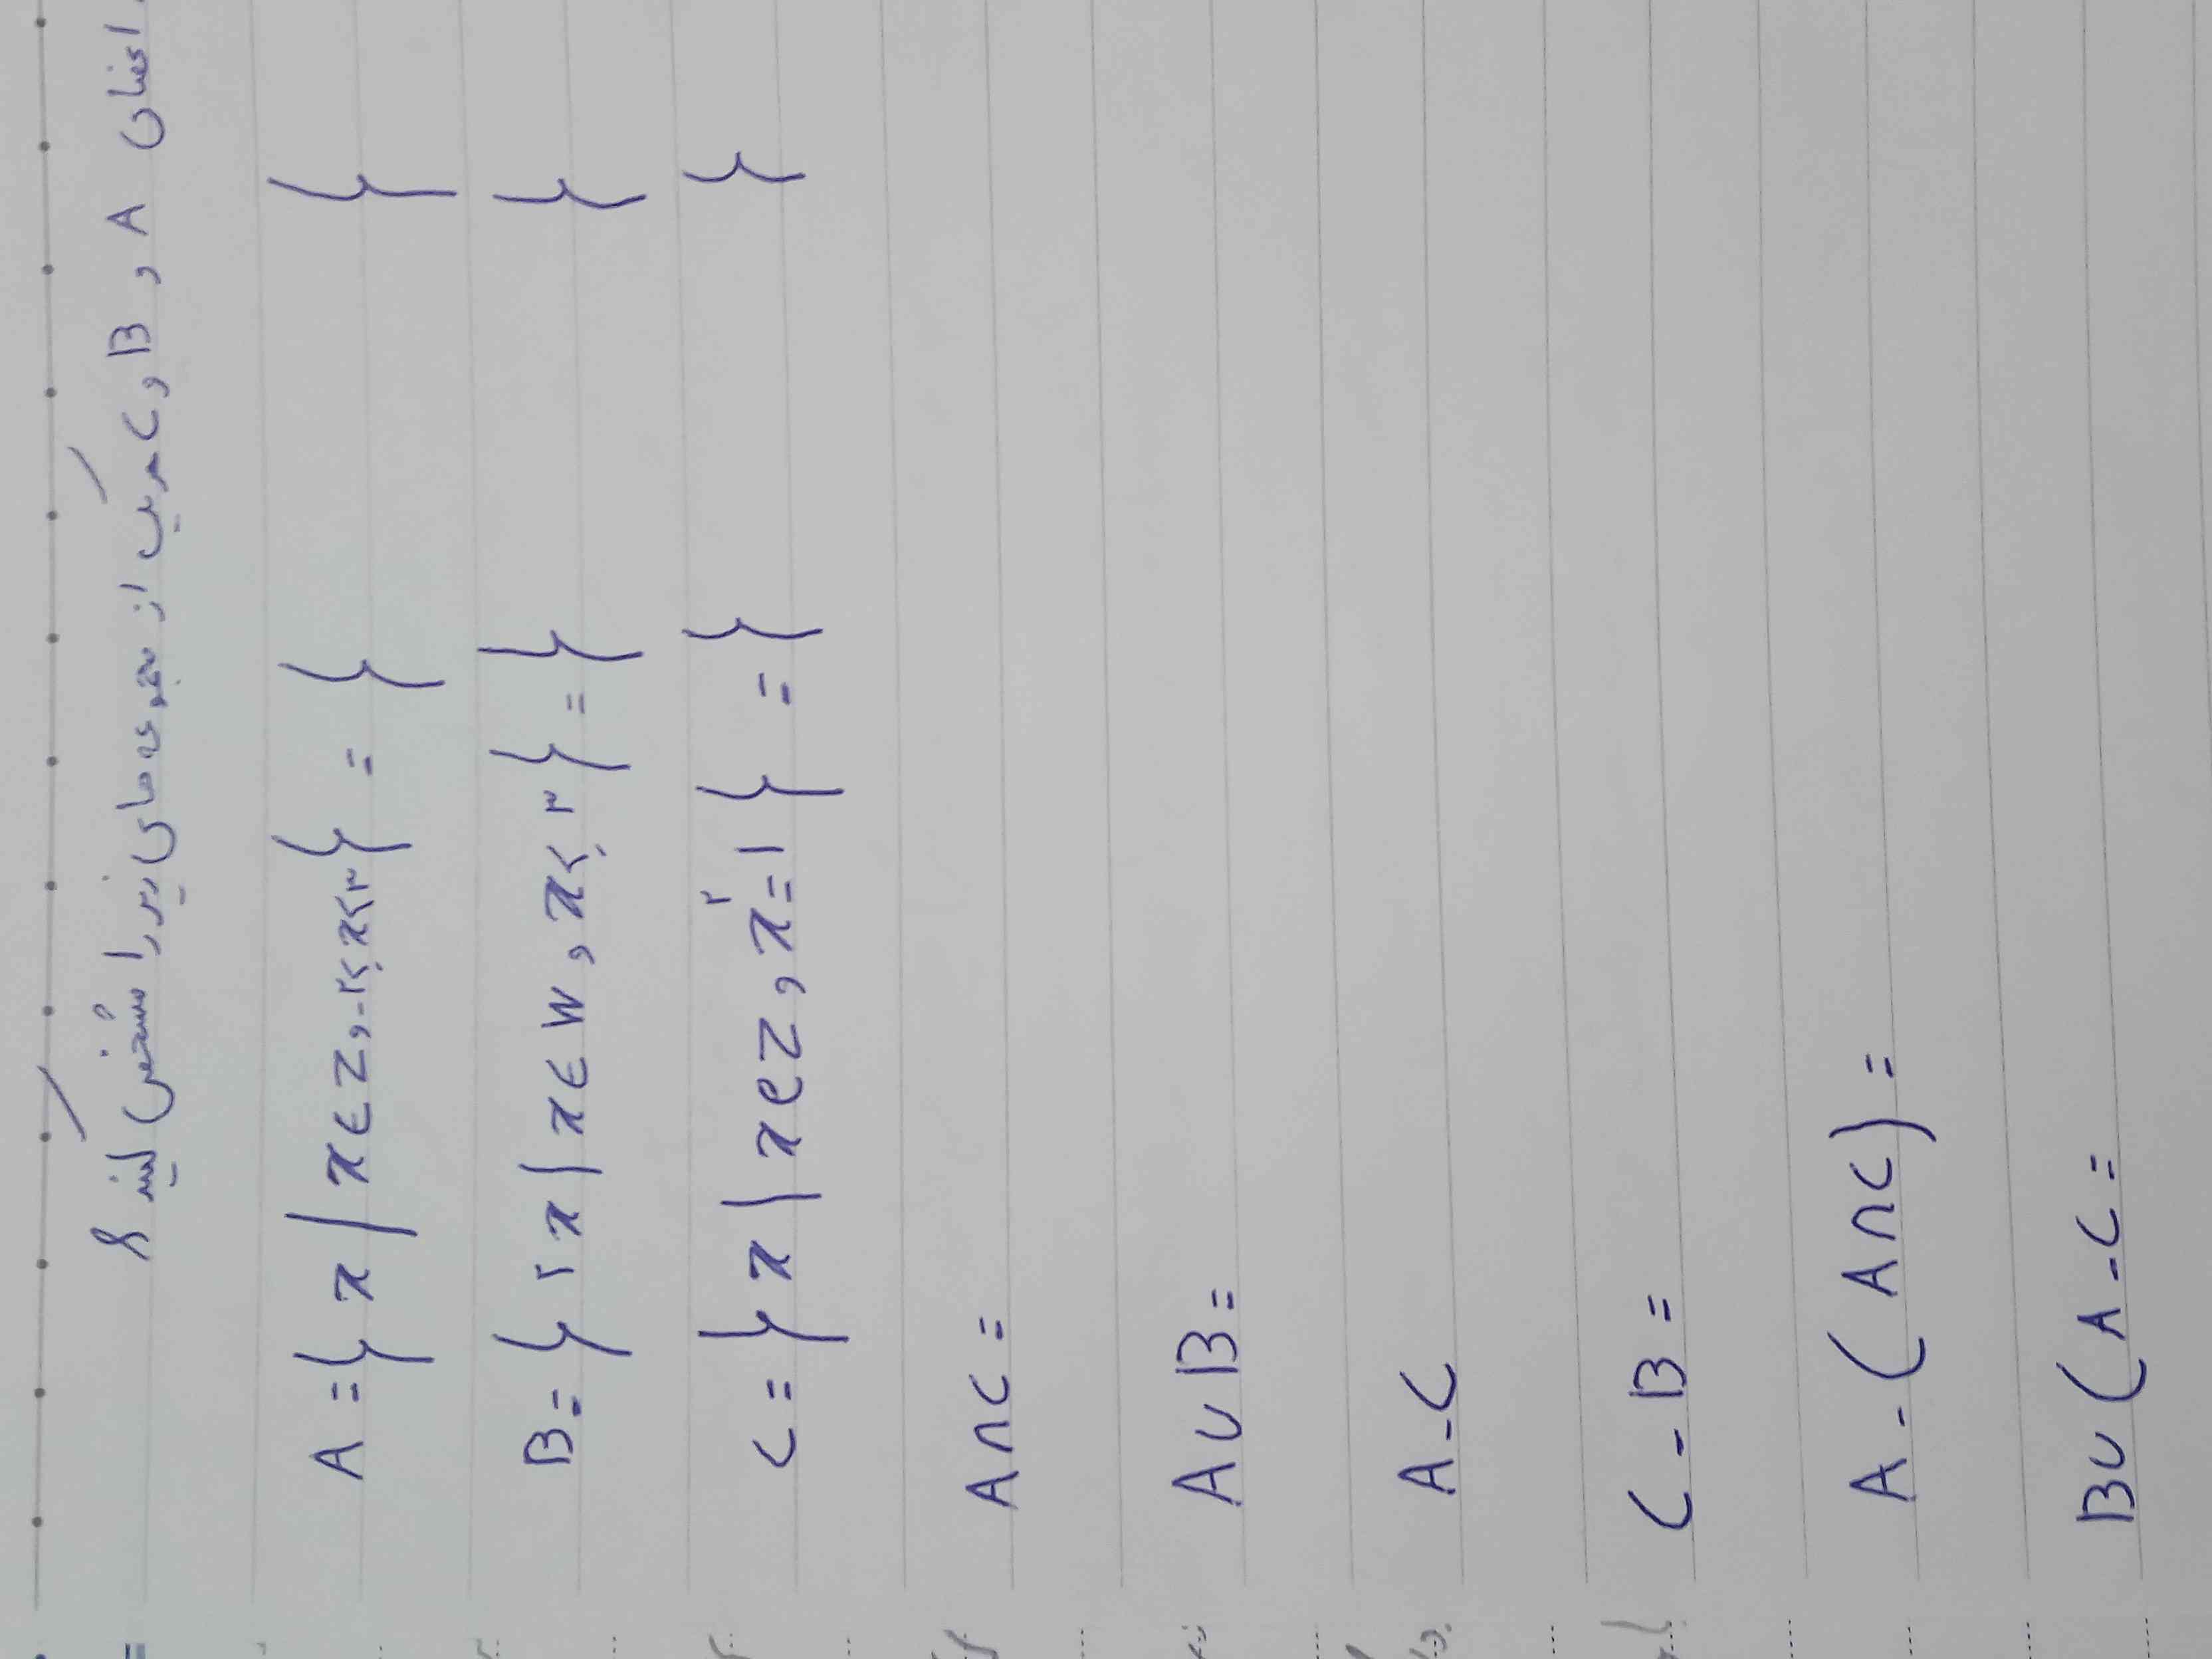 اعضای A و B و C هریک از مجموعه های زیر را مشخص کنید ؟
A = { x | x ∈ Z , -۲ ≤ x < ۳ } = { }
B = { ۲x | x ∈ W , x ≤ ۳ } = { }
C = { x | x ∈ Z , x² = ۱ } = { }
A ∩ C =
A ∪ B =
A - C
C - B =
A - ( A ∩ C ) =
B ∪ ( A - C =